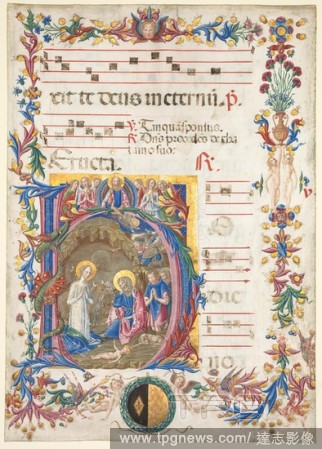 eit te deus in eternũ. p̃.
℣. Tinquã sponsus.
℟. Dñs procedẽs de tha
lamo suo.
Eructa. ℟.
H
DIC
NO
www.tpgnews.com / 達志影像